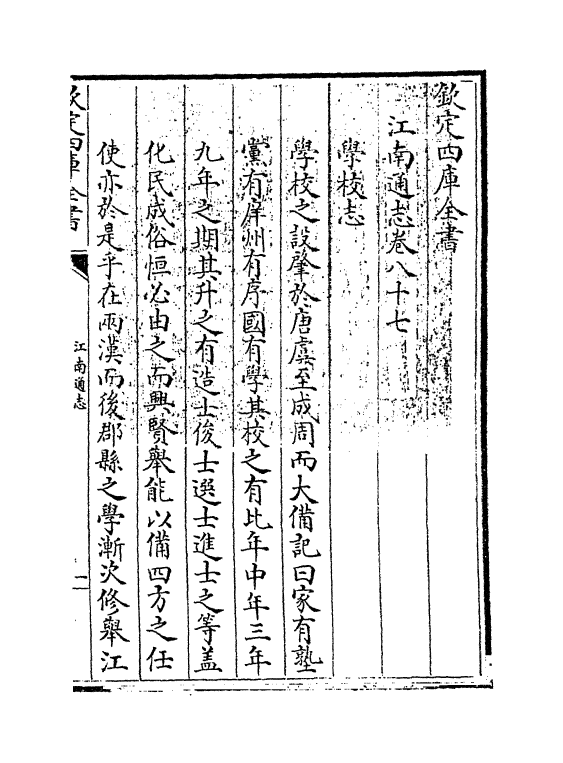 欽定四庫全書
江南通志卷八十七
學校志
學校之設肇於唐虞至成周而大備記曰家有塾
黨有庠州有序國有學其校之有比年中年三年
九年之期其升之有造士俊士選士進士之等蓋
化民成俗恒必由之而興賢舉能以備四方之任
使亦於是乎在兩漢而後郡縣之學漸次修舉江
欽定四庫全書
江南通志